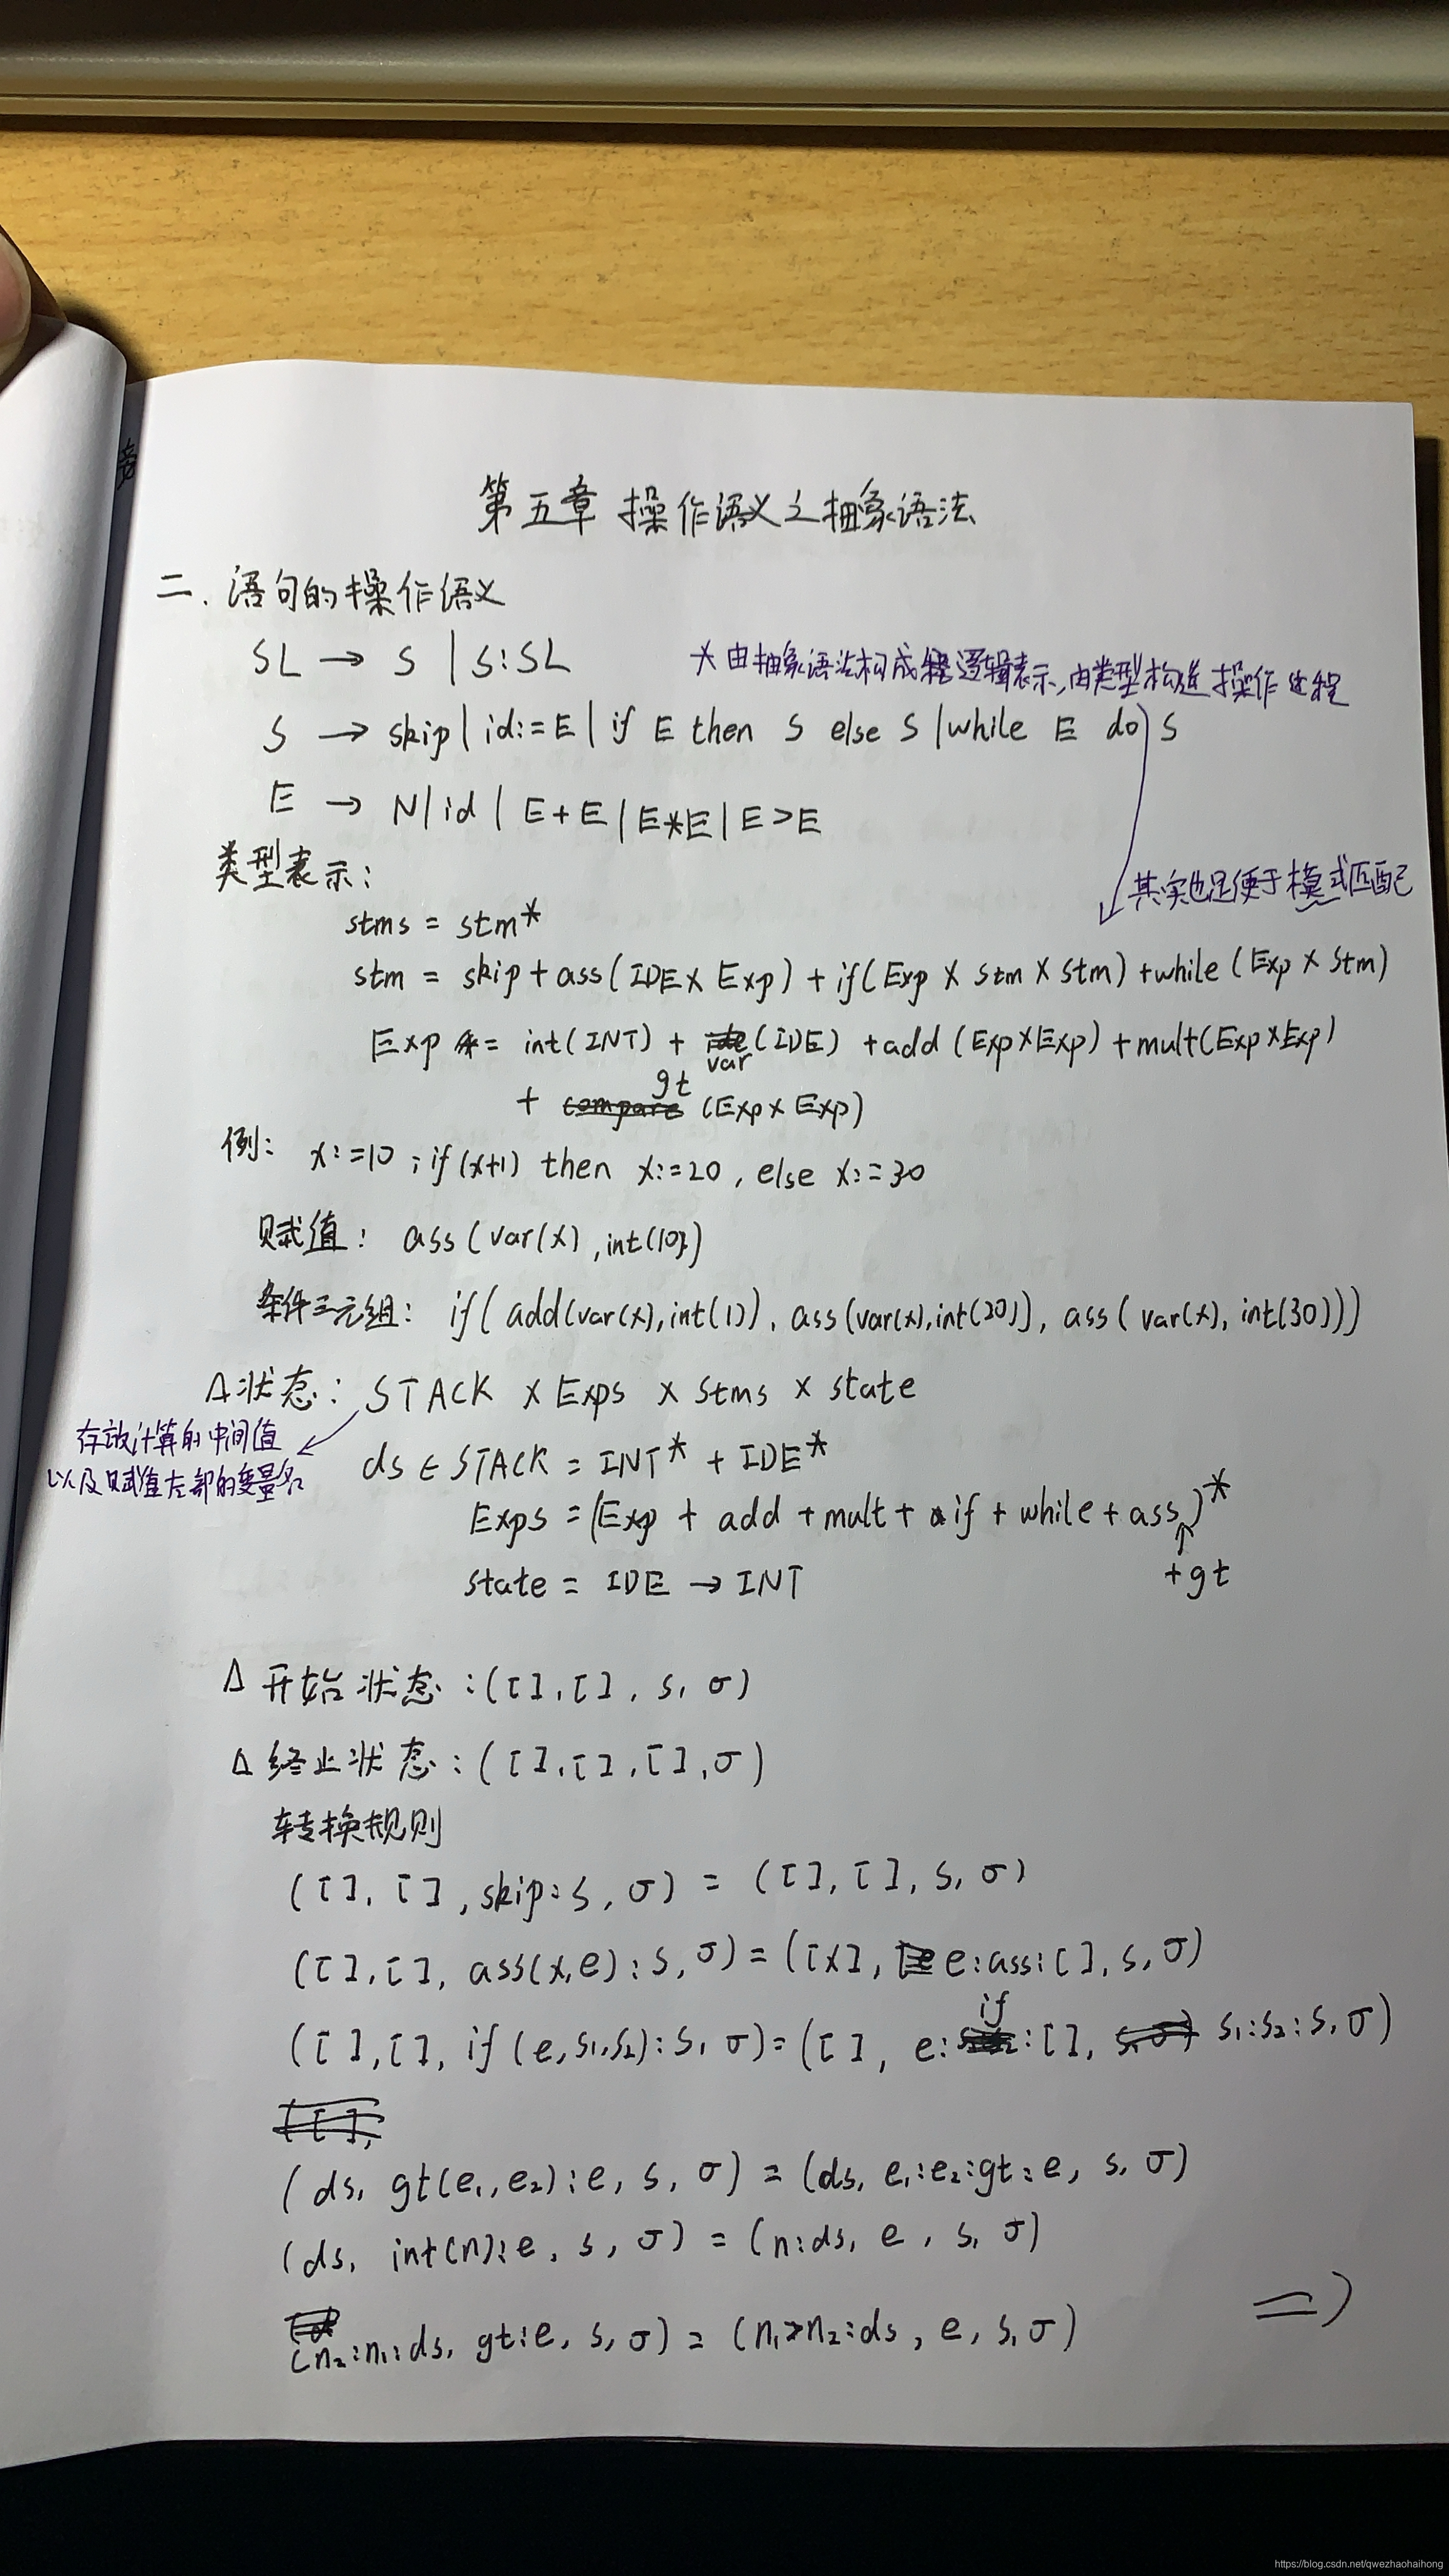 旁
第五章 操作语义之抽象语法
二. 语句的操作语义
SL → S | S:SL
* 由抽象语法构成 逻辑表示, 由类型构造操作过程
S → skip | id:=E | if E then S else S | while E do S
E → N | id | E+E | E*E | E>E
类型表示:
其实也是便于模式匹配
stms = stm*
stm = skip + ass(IDE × Exp) + if(Exp × stm × stm) + while(Exp × stm)
Exp = int(INT) + var(IDE) + add(Exp×Exp) + mult(Exp×Exp)
+ gt (Exp × Exp)
例: x:=10 ; if(x+1) then x:=20, else x:=30
赋值: ass(var(x), int(10))
条件三元组: if(add(var(x),int(1)), ass(var(x),int(20)), ass(var(x), int(30)))
Δ状态: STACK × Exps × Stms × state
存放计算的中间值
以及赋值左部的变量名
ds ∈ STACK = INT* + IDE*
Exps = (Exp + add + mult + if + while + ass)*
+gt
state = IDE → INT
Δ 开始状态: ([], [], s, σ)
Δ 终止状态: ([], [], [], σ)
转换规则
([], [], skip:s, σ) = ([], [], s, σ)
([], [], ass(x,e):s, σ) = ([x], e:ass:[], s, σ)
([], [], if(e,s₁,s₂):s, σ) = ([], e:if:[], s₁:s₂:s, σ)
(ds, gt(e₁,e₂):e, s, σ) = (ds, e₁:e₂:gt:e, s, σ)
(ds, int(n):e, s, σ) = (n:ds, e, s, σ)
(n₂:n₁:ds, gt:e, s, σ) = (n₁>n₂:ds, e, s, σ)
https://blog.csdn.net/qwezhaohaihong